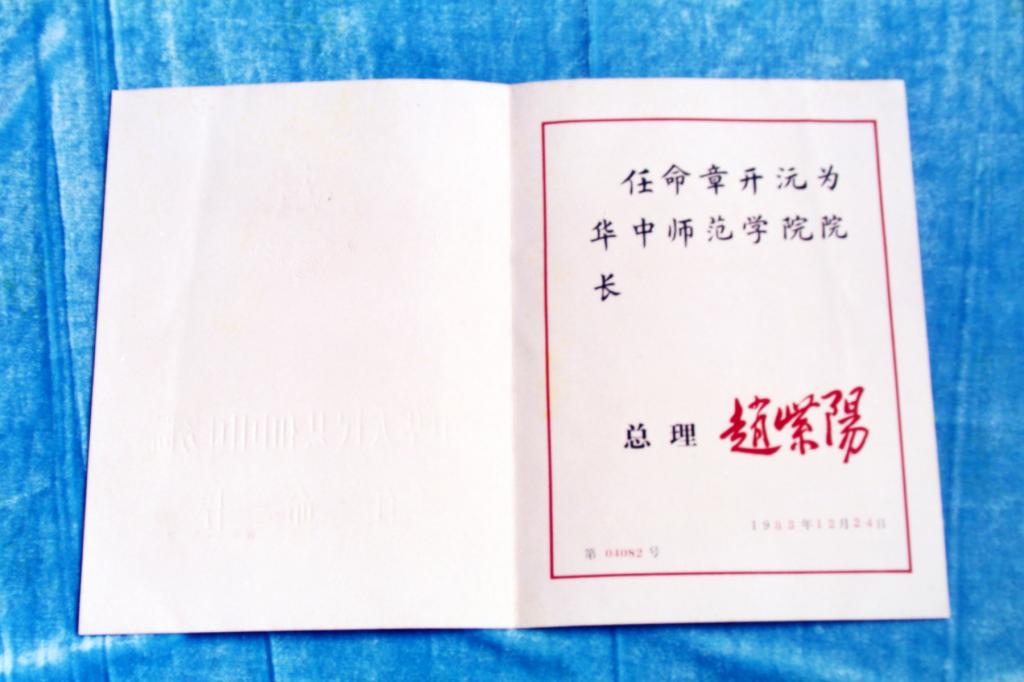 任命章开沅为
华中师范学院院
长
总理 趙紫陽
1983年12月24日
第 04082 号